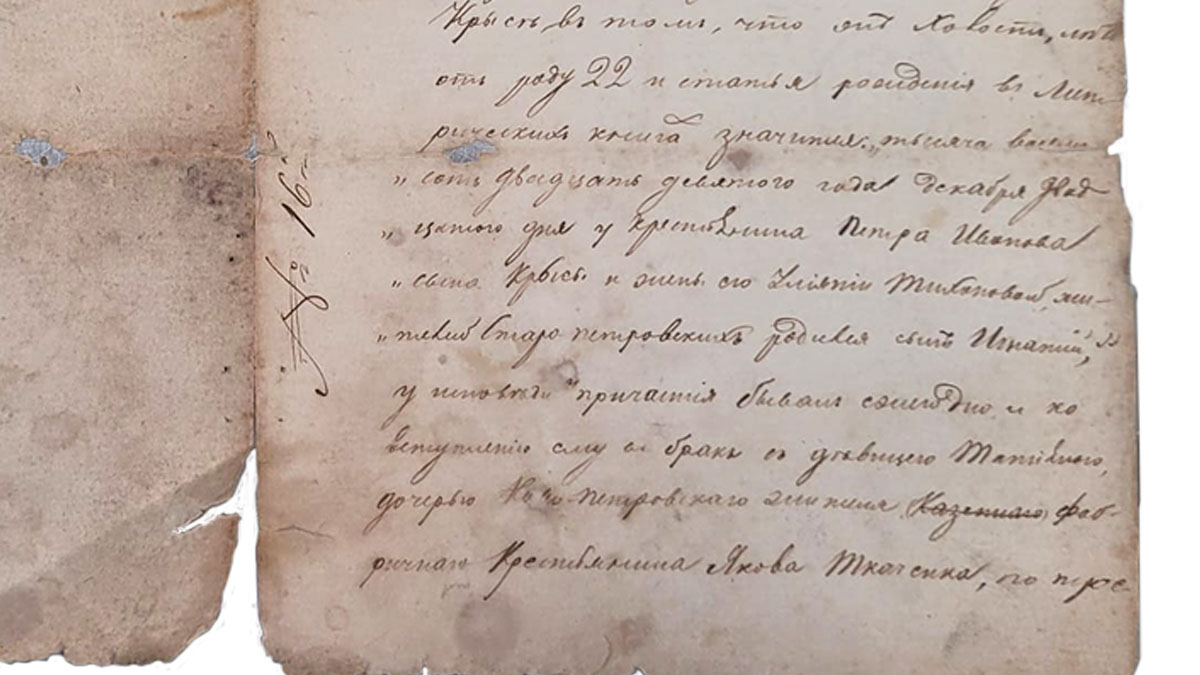 Крысь, въ томъ, что онъ холостъ, лѣтъ
отъ роду 22 и статья рожденія въ Мет-
рическихъ книгахъ значится: „тысяча восемь
„сотъ двадцать девятого года декабря двад-
„цатого дня у крестьянина Петра Иванова
„сына Крыся и жены его
„Старо петровскихъ родился сынъ Игнатій", 
у исповѣди и причастія бывалъ ежегодно, и ко
вступленію ему въ бракъ съ дѣвицею Татіяною,
дочерью петровскаго жителя Казеннаго Фаб-
ричнаго Крестьянина Якова Ткаченка, по
№ 16